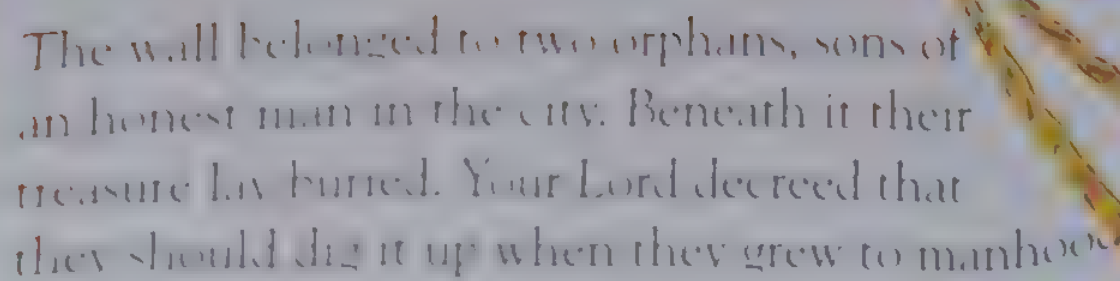 The wall belonged to two orphans, sons of
an honest man in the city. Beneath it their
treasure lay buried. Your Lord decreed that
they should dig it up when they grew to manhoo